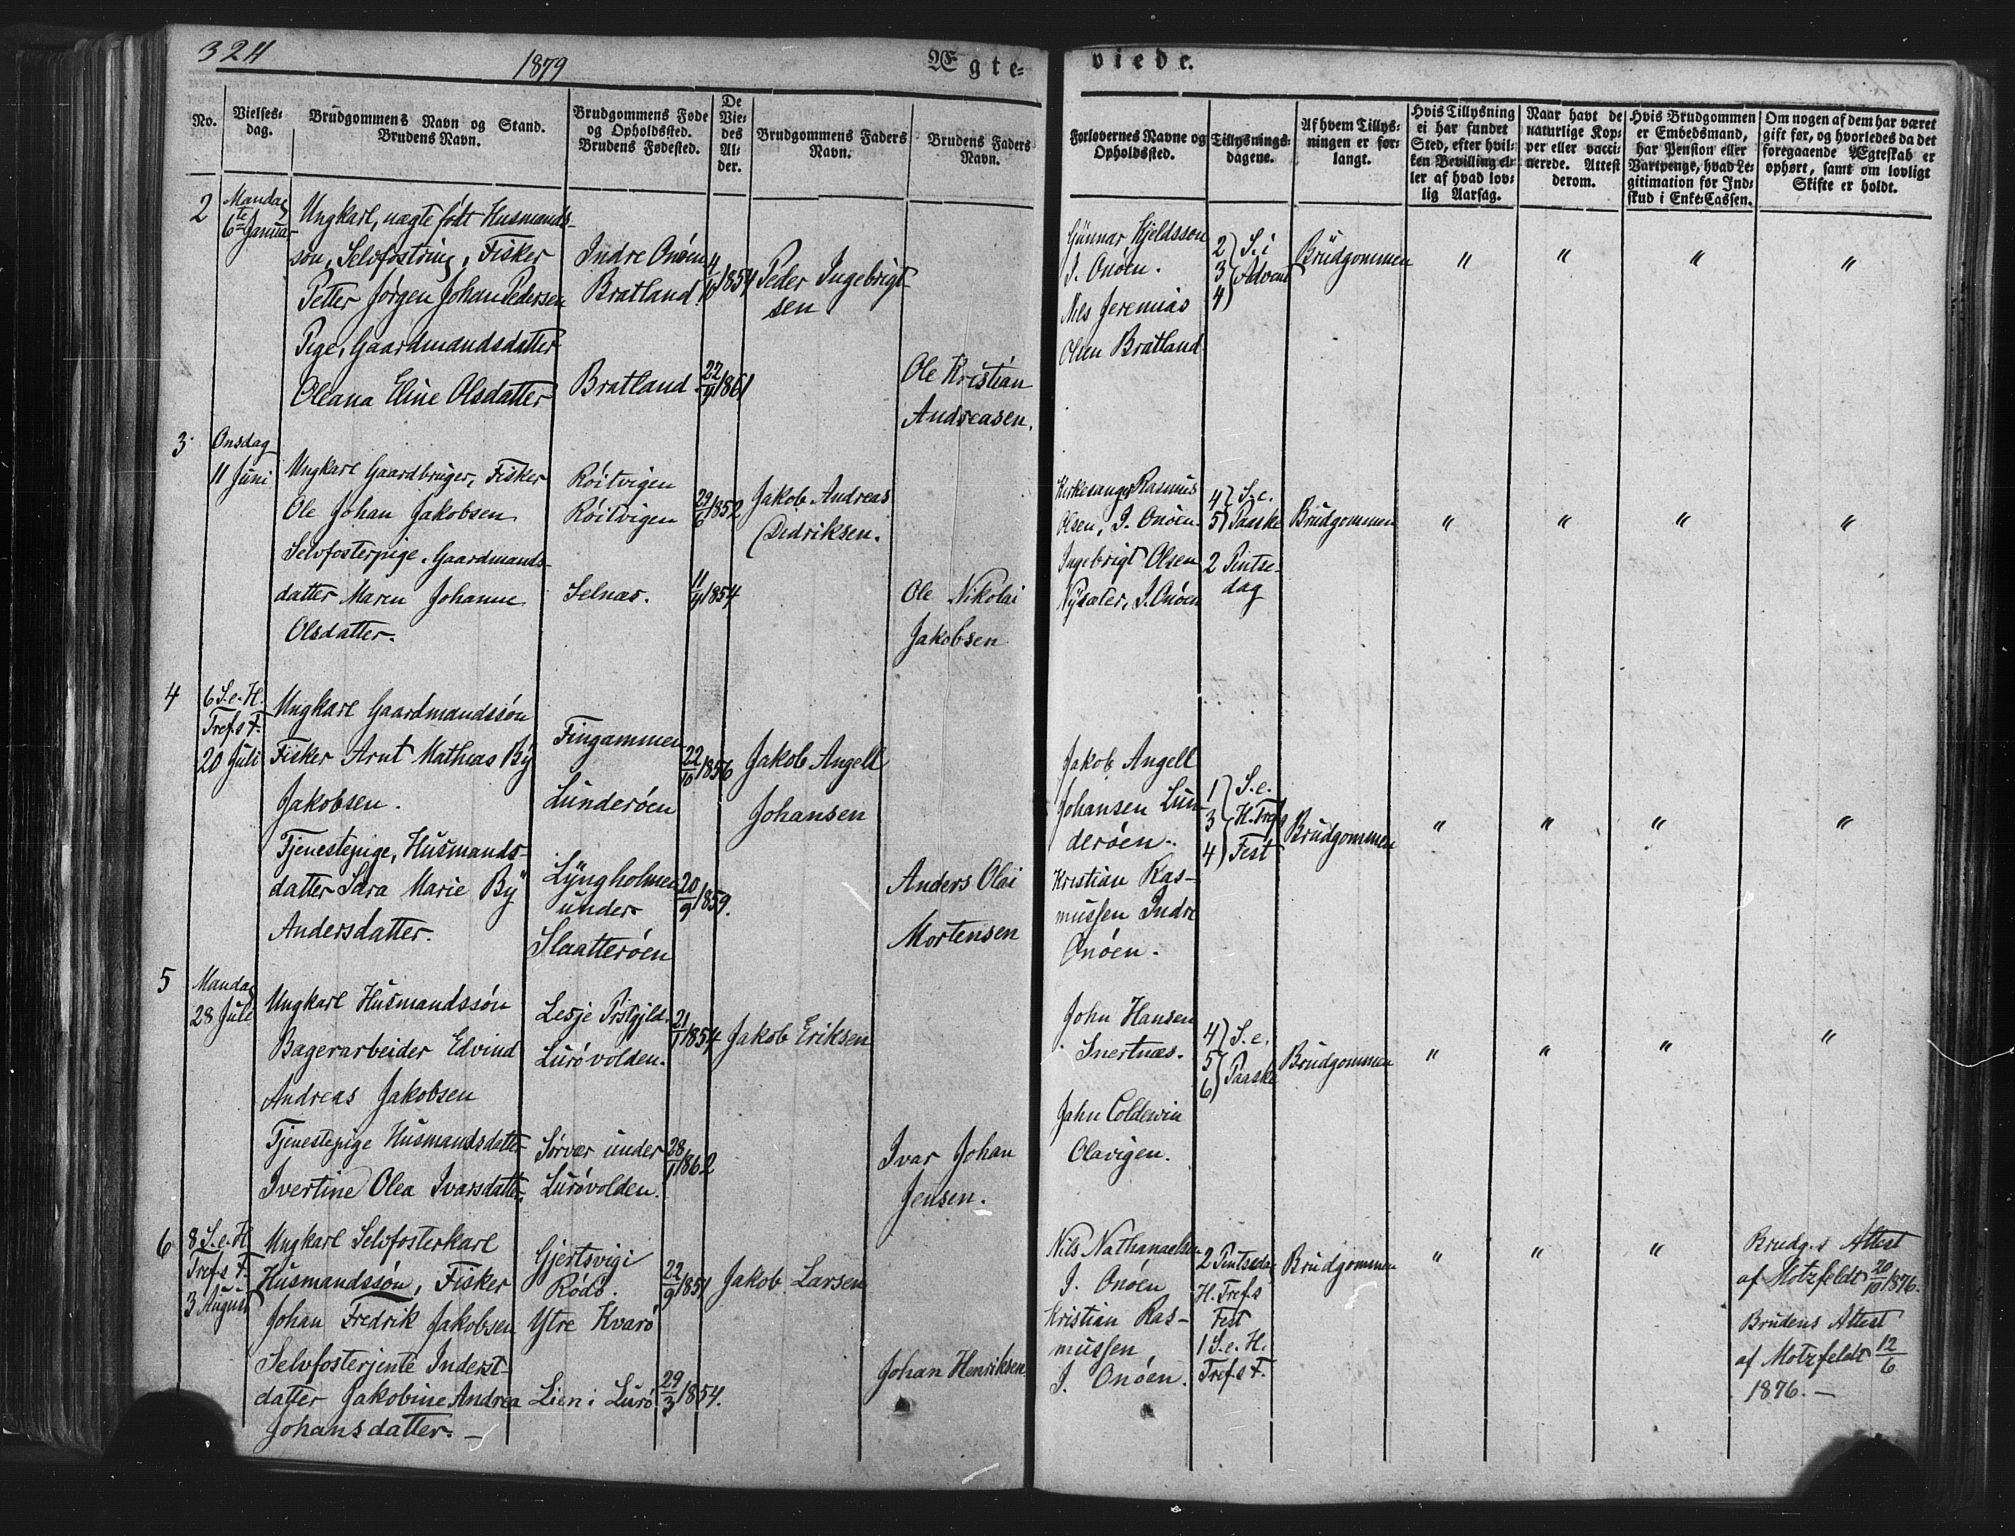 324
1879
Ægte-
viede.
No.
Vielses-
dag.
Brudgommens Navn og Stand.
Brudens Navn.
Brudgommens Føde
og Opholdssted.
Brudens Fødested.
De
Vie-
des
Al-
der.
Brudgommens Faders
Navn.
Brudens Faders
Navn.
Forlovernes Navne og
Opholdssted.
Tillysnings-
dagene.
Af hvem Tillys-
ningen er for-
langt.
Hvis Tillysning
ei har fundet
Sted, efter hvil-
ken Bevilling el-
ler af hvad lov-
lig Aarsag.
Naar havt de
naturlige Kop-
per eller vacci-
nerede. Attest
derom.
Hvis Brudgommen
er Embedsmand,
har Pension eller
Vartpenge, hvad Le-
gitimation for Ind-
skud i Enke-Cassen.
Om nogen af dem har været
gift før, og hvorledes da det
foregaaende Ægteskab er
ophørt, samt om lovligt
Skifte er holdt.
2
Mandag
6te Januar
Ungkarl, uægte født Husmands-
søn, Selvfostring, Fisker
Petter Jørgen Johan Pedersen
Pige, Gaardmandsdatter
Oleana Eline Olsdatter
Indre Onøen
Bratland
Bratland
4/10 1854
22/9 1861
Peder Ingebrigt-
sen
Ole Kristian
Andreasen.
Gunnar Kjeldsson
I. Onøen.
Nils Jeremias
Olsen Bratland
2 } S. i
3 } Advent
4 }
Brudgommen
" " " "
3
Onsdag
11 Juni
Ungkarl Gaardbruger, Fisker
Ole Johan Jakobsen
Selvfosterpige, Gaardmands-
datter Maren Johanne
Olsdatter.
Røitvigen
Røitvigen
Selnæs.
29/6 1852
11/9 1854
Jakob Andreas
Didriksen.
Ole Nikolai
Jakobsen
Kirkesanger Rasmus
Olsen, I. Onøen.
Ingebrigt Olsen
Nysæter, I. Onøen
4 } S. e.
5 } Paaske
2 Pintse-
dag
Brudgommen
" " " "
4
6 S. e. H.
Tref.s F.
20 Juli
Ungkarl Gaardmandssøn
Fisker Arnt Mathias By
Jakobsen.
Tjenestepige, Husmands-
datter Sara Marie By
Andersdatter.
Fingammen
Lunderøen
Lyngholmen
under
Slaatterøen
22/10 1856
20/9 1859.
Jakob Angell
Johansen
Anders Olai
Mortensen
Jakob Angell
Johansen Lun-
derøen.
Kristian Ras-
mussen Indre
Onøen.
1 } S. e.
3 } H. Tref.s
4 } Fest
Brudgommen
" " " "
5
Mandag
28 Juli
Ungkarl Husmandssøn
Bagerarbeider Edvind
Andreas Jakobsen
Tjenestepige Husmandsdatter
Ivertine Olea Ivarsdatter.
Lesje Prstgjld.
Lurøvolden.
Sørvær under
Lurøvolden.
21/1 1854
28/1 1862
Jakob Eriksen
Ivar Johan
Jensen.
John Hansen
Snertnæs.
Jahn Coldevin
Olavigen.
4 } S. e.
5 } Paaske
6 }
Brudgommen
" " " "
6
8 S. e. H.
Tref.s F.
3 August
Ungkarl Selvfosterkarl
Husmandssøn, Fisker
Johan Fredrik Jakobsen
Selvfosterjente Inderst-
datter Jakobine Andrea
Johansdatter. —
Gjertsvigi
Rødø.
Ytre Kvarø
Lien i Lurø
22/9 1851
29/3 1854.
Jakob Larsen
Johan Henriksen
Nils Nathanaelsen
I. Onøen
Kristian Ras-
mussen
I. Onøen.
2 Pintsedag
H. Tref.s
Fest
1 S. e. H.
Tref.s F.
Brudgommen
" " "
Brudg.s Attest
af Motzfeldt 20/10 1876.
Brudens Attest
af Motzfeldt 12/6
1876. —